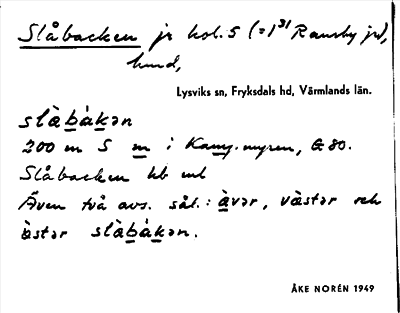 Slåbacken jr kol. 5 (=1³¹ Ransby jr),
hmd,
Lysviks sn, Fryksdals hd, Värmlands län.
slàbákən
200 m S m i myren, G 80.
Slåbacken hb ml
Även två avs. säl.: àvər, vàstər och
àstər slàbákən.
ÅKE NORÉN 1949